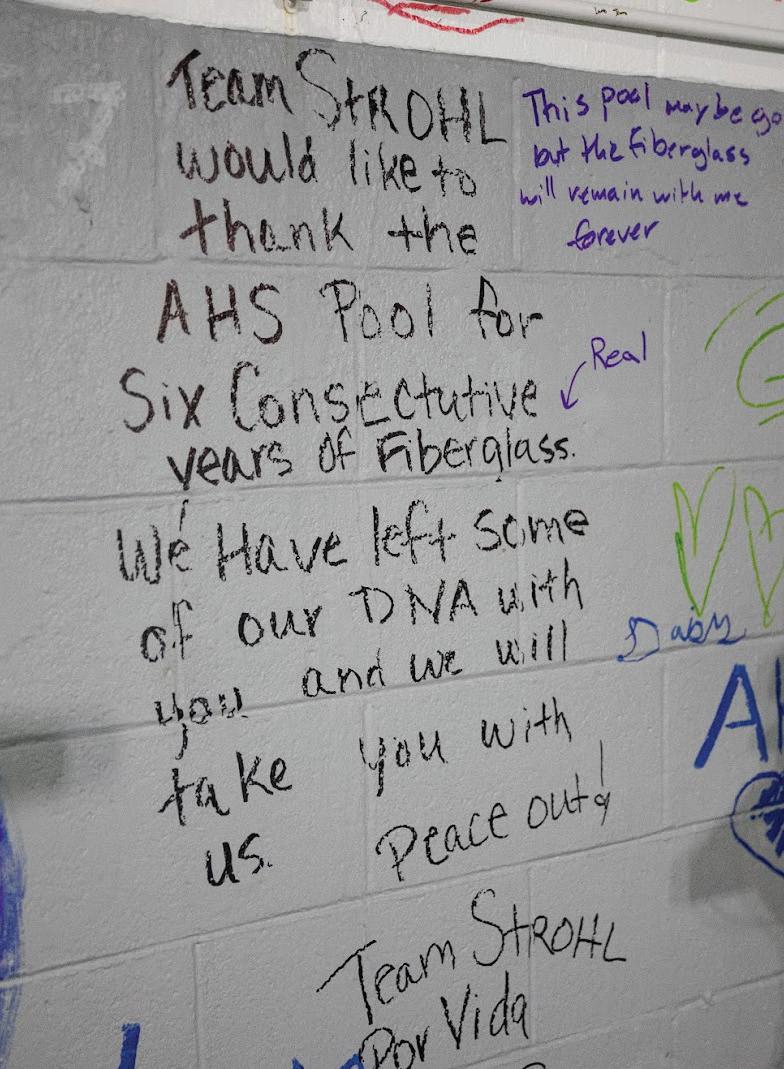 7
Team StROHL
would like to
thank the
AHS Pool for
Six Consectutive
years of Fiberglass.
We Have left some
of our DNA with
you and we will
take you with
us. Peace out!
Team StROHL
Por Vida
This pool may be go
but the fiberglass
will remain with me
forever
Real